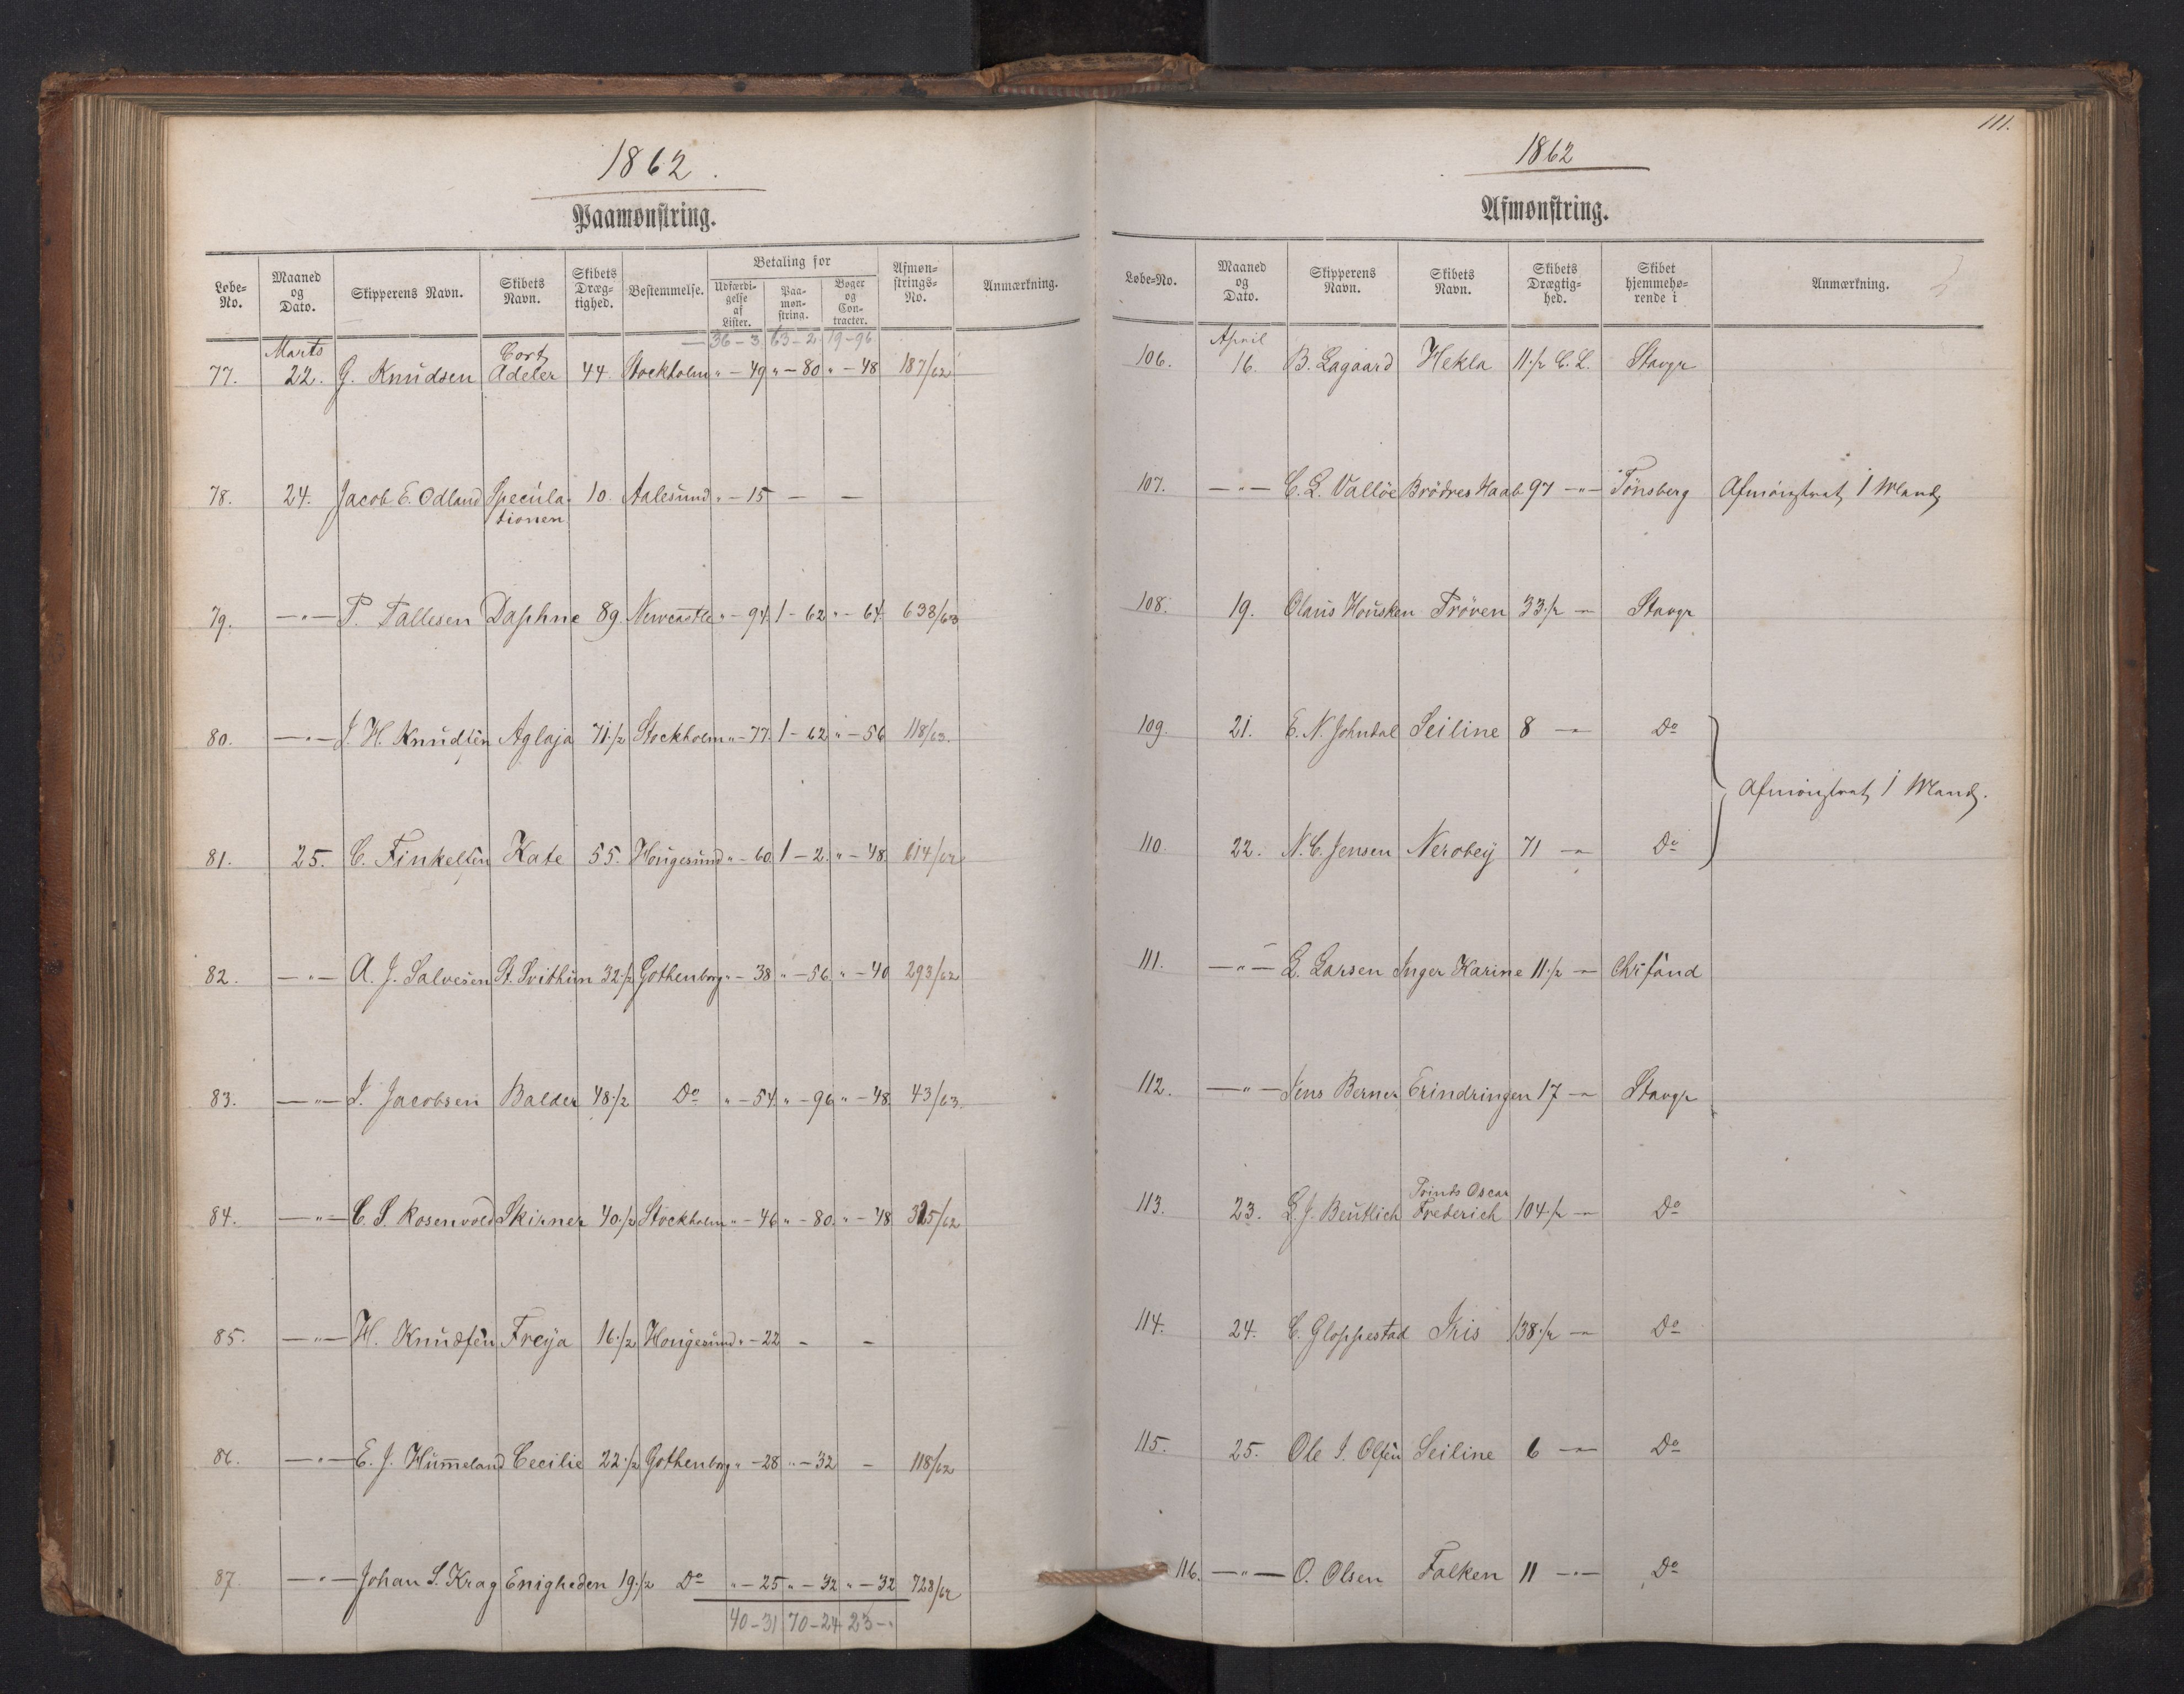 1862.
Paamønstring.
Løbe-No. Maaned og Dato. Skipperens Navn. Skibets Navn. Skibets Dræg-tighed. Bestemmelse. Betaling for Udfærdi-gelse af Lister. Paa-møn-string. Bøger og Con-tracter. Afmøn-strings-No. Anmærkning.
36-3 63-2 19-96
Marts
77. 22. G. Knudsen Cort Adeler 44 Stockholm " - 49 " - 80 " - 48 187/62
78. 24. Jacob E. Odland Specula-tionen 10. Aalesund " - 15 - -
79. -"- P. Tallesen Daphne 89. Newcastle " - 94 1 - 62 " - 64 638/63
80. -"- J. H. Knudsen Aglaja 71 1/2 Stockholm " - 77 1 - 62 " - 56 118/63.
81. 25. C. Finkelsen Kate 55. Hougesund " - 60 1 - 2 " - 48 614/62
82. -"- A. J. Salvesen St. Svithun 32 1/2 Gothenborg " - 38 " - 56 " - 40 293/62
83. -"- J. Jacobsen Balder 48 1/2 Do " - 54 " - 96 " - 48 43/63
84. -"- C. S. Rosenvold Skirner 40 1/2 Stockholm " - 46 " - 80 " - 48 325/62
85. -"- H. Knudsen Freya 16 1/2 Hougesund " - 22 - -
86. -"- E. J. Hummeland Cecilie 22 1/2 Gothenborg " - 28 " - 32 - 118/62
87. -"- Johan S. Krag Enigheden 19 1/2 Do " - 25 " - 32 " - 32 728/62
40-31 70-24 23-"
111.
1862
Afmønstring.
Løbe-No. Maaned og Dato. Skipperens Navn. Skibets Navn. Skibets Drægtig-hed. Skibet hjemmehø-rende i Anmærkning.
April
106. 16. B. Lagaard Hekla 11 1/2 C. L. Stavgr
107. -"- C. L. Valløe Brödres Haab 97 -"- Tönsberg Afmönstrat 1 Mand
108. 19. Olaus Housken Pröven 33 1/2 -"- Stavgr
109. 21. E. N. Johndal Seiline 8 -"- Do
Afmönstrat 1 Mand.
110. 22. N. C. Jensen Nerobey 71 -"- Do
111. -"- L. Larsen Inger Karine 11 1/2 -"- Chrsand
112. -"- Jens Berner Erindringen 17 -"- Stavgr
113. 23. L. J. Beutlich Prinds Oscar Frederich 104 1/2 -"- Do
114. 24. C. Gloppestad Iris 138 1/2 -"- Do
115. 25. Ole I. Olsen Seiline 6 -"- Do
116. -"- O. Olsen Falken 11 -"- Do